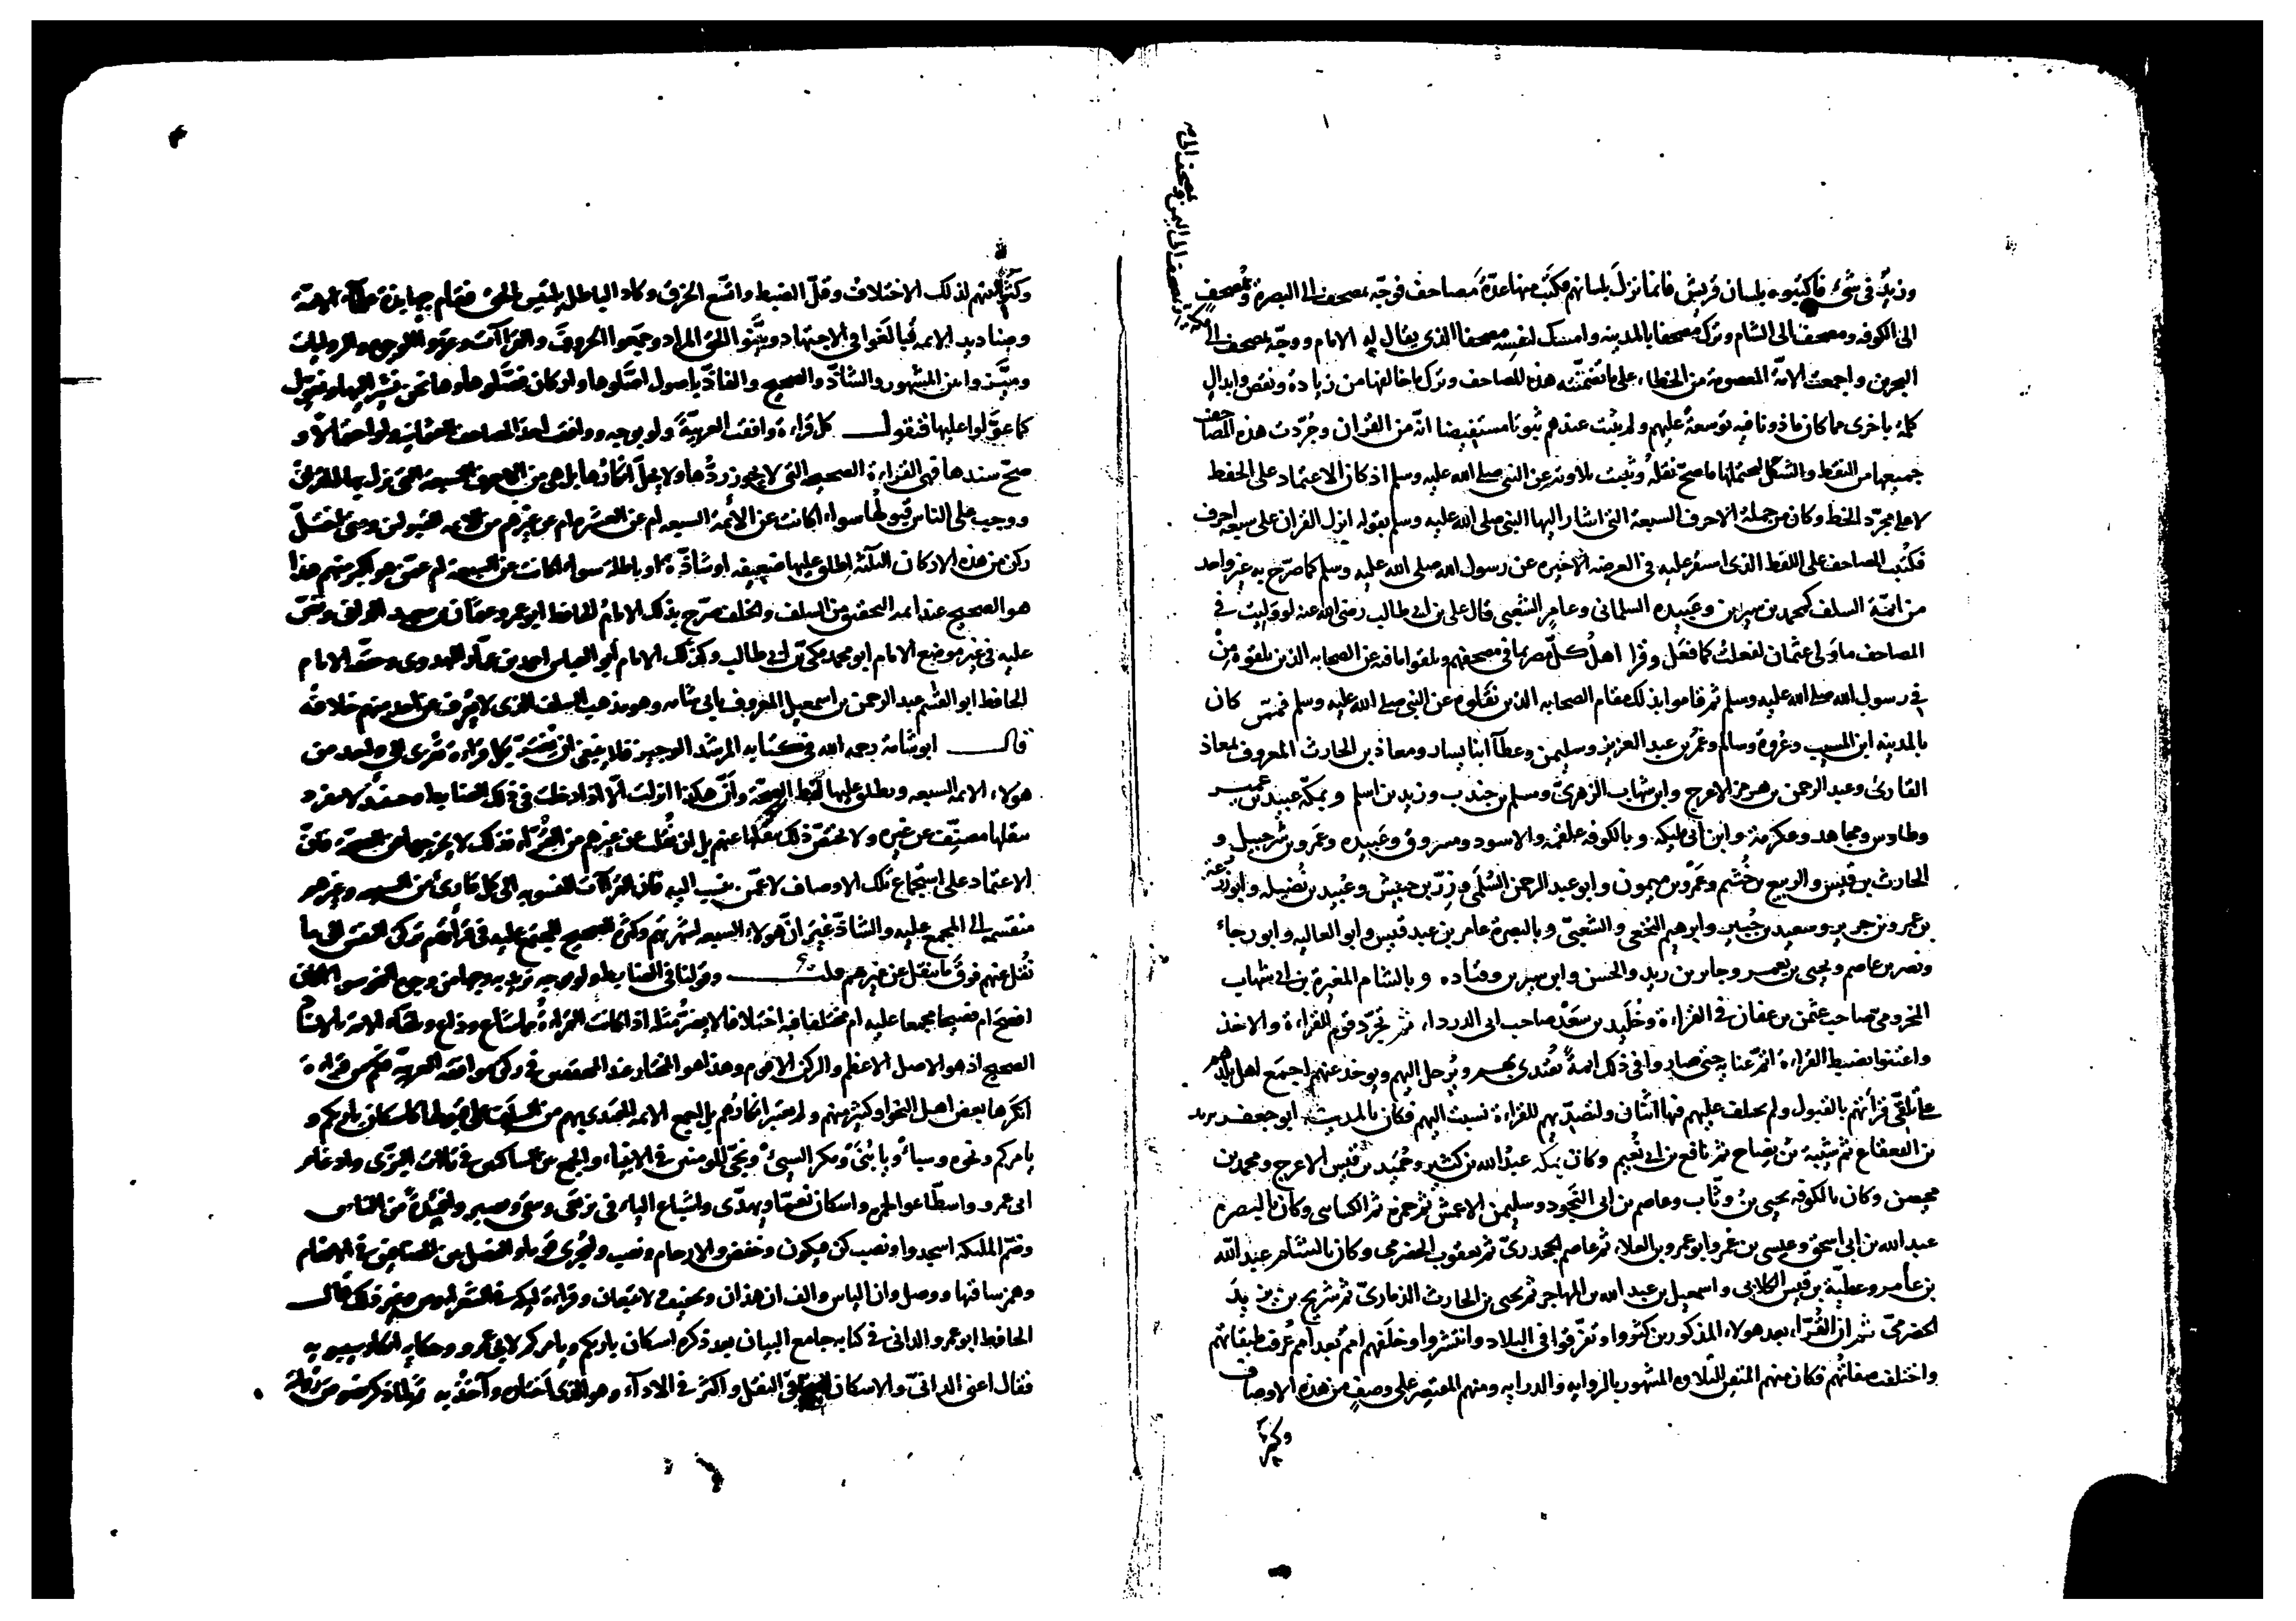 وزيد في شيء فاكتبوه بلسان قريش فانما نزل بلسانهم فكتب منها عدة مصاحف فوجه بمصحف الى البصرة ومصحف
الى الكوفه ومصحفا الى الشام وترك مصحفا بالمدينه وامسك لنفسه مصحفا الذي يقال له الامام ووجه بمصحف الى
مكة وبمصحف الى اليمن وبمصحف الى
البحرين واجمعت الامة المعصومة من الخطاء على ما تضمنته هذه المصاحف وترك ما خالفها من زيادة ونقص وابدال
كلمة باخرى مما كان ماذونا فيه توسعة عليهم ولم يثبت عندهم ثبوتا مستفيضا انه من القران وجردت هذه المصاحف
جميعها من النقط والشكل ليحتملها ما صح نقله وثبت تلاوته عن النبي صلى الله عليه وسلم اذ كان الاعتماد على الحفظ
لا على مجرد الخط وكان من جملة الاحرف السبعة التي اشار اليها النبي صلى الله عليه وسلم بقوله انزل القران على سبعة احرف
فكتب المصاحف على اللفظ الذي استقر عليه في العرضه الاخيره عن رسول الله صلى الله عليه وسلم كما صرح به غير واحد
من ائمة السلف كمحمد بن سيرين وعبيده السلماني وعامر الشعبي قال علي بن ابي طالب رضي الله عنه لو وليت في
المصاحف ما ولي عثمان لفعلت كما فعل وقرا اهل كل مصر بما في مصحفهم وتلقوا ما فيه عن الصحابه الذين تلقوه من
في رسول الله صلى الله عليه وسلم ثم قاموا بذلك مقام الصحابه الذين تلقوه عن النبي صلى الله عليه وسلم فممن كان
بالمدينه ابن المسيب وعروة وسالم وعمر بن عبد العزيز وسليمن وعطآ ابنا يسار ومعاذ بن الحارث المعروف بمعاذ
القارئ وعبد الرحمن بن هرمز الاعرج وابن شهاب الزهري ومسلم بن جندب وزيد بن اسلم وبمكة عبيد بن عمير
وطاوس ومجاهد وعكرمة وابن ابي مليكه وبالكوفه علقمه والاسود ومسروق وعبيده وعمرو بن شرحبيل و
الحارث بن قيس والربيع بن خثيم وعمرو بن ميمون وابو عبد الرحمن السلمي وزر بن حبيش وعبيد بن نضيله وابو زرعة
بن عمرو بن جرير وسعيد بن جبير وابرهيم النخعي والشعبي وبالبصرة عامر بن عبد قيس وابو العاليه وابو رجاء
ونصر بن عاصم ويحيى بن يعمر وجابر بن زيد والحسن وابن سيرين وقتاده وبالشام المغيرة بن ابي شهاب
المخزومي صاحب عثمن بن عفان في القراءة وخليد بن سعد صاحب ابي الدرداء ثم تجرد قوم للقراءة والاخذ
واعتنوا بضبط القراءة اتم عناية حتى صاروا في ذلك ائمة يقتدى بهم ويرحل اليهم ويوخذ عنهم اجمع اهل بلدهم
على تلقي قرأتهم بالقبول ولم يختلف عليهم فيها اثنان ولتصديهم للقراءة نسبت اليهم فكان بالمدينة ابو جعفر يزيد
بن القعقاع ثم شيبة بن نصاح ثم نافع بن ابي نعيم وكان بمكه عبد الله بن كثير وحميد بن قيس الاعرج ومحمد بن
محيصن وكان بالكوفه يحيى بن وثاب وعاصم بن ابي النجود وسليمن الاعمش ثم حمزة ثم الكسائي وكان بالبصره
عبد الله بن ابي اسحق وعيسى بن عمر وابو عمرو بن العلاء ثم عاصم الجحدري ثم يعقوب الحضرمي وكان بالشام عبد الله
بن عامر وعطية بن قيس الكلابي واسمعيل بن عبد الله بن المهاجر ثم يحيى بن الحارث الذماري ثم شريح بن يزيد
الحضرمي ثم ان القراء بعد هولاء المذكورين كثروا وتفرقوا في البلاد وانتشروا وخلفهم امم بعد امم عرفت طبقاتهم
واختلفت صفاتهم فكان منهم المتقن للتلاوه المشهور بالروايه والدرايه ومنهم المقتصر على وصف من هذه الاوصاف
وكثر
وكثر بينهم لذلك الاختلاف وقل الضبط واتسع الخرق وكاد الباطل يلتبس بالحق فقام جهابذة علماء الامة
وصناديد الايمه فبالغوا في الاجتهاد وبينوا الحق المراد وجمعوا الحروف والقراآت وعزوا الوجوه والروايات
وميزوا بين المشهور والشاذ والصحيح والفاذ باصول اصلوها واركان فصلوها وها نحن نشير اليها ونعول
كما عولوا عليها فنقول كل قراءة وافقت العربية ولو بوجه ووافقت احد المصاحف العثمانيه ولو احتمالا و
صح سندها فهي القراءة الصحيحه التي لا يجوز ردها ولا يحل انكارها بل هي من الاحرف السبعة التي نزل بها القران
ووجب على الناس قبولها سواء كانت عن الائمة السبعه ام عن العشره ام عن غيرهم من الايمه المقبولين ومتى اختل
ركن من هذه الاركان الثلثة اطلق عليها ضعيفه او شاذة او باطله سواء كانت عن السبعه ام عمن هو اكبر منهم هذا
هو الصحيح عند ايمه التحقيق من السلف والخلف صرح بذلك الامام الحافظ ابو عمرو عثمان بن سعيد الداني ونص
عليه في غير موضع الامام ابو محمد مكي بن ابي طالب وكذلك الامام ابو العباس احمد بن عمار المهدوي وحققه الامام
الحافظ ابو القسم عبد الرحمن بن اسمعيل المعروف بابي شامه وهو مذهب السلف الذي لا يعرف عن احد منهم خلافه
قال ابو شامة رحمه الله في كتابه المرشد الوجيز فلا ينبغي ان يغتر بكل قراءة تعزى الى واحد من
هولاء الايمه السبعه ويطلق عليها لفظ الصحة وان هكذا انزلت الا اذا دخلت في ذلك الضابط وحينئذ لا ينفرد
بنقلها مصنف عن غيره ولا يختص ذلك بنقلها عنهم بل ان نقلت عن غيرهم من القراء فذلك لا يخرجها عن الصحة فان
الاعتماد على استجماع تلك الاوصاف لا عمن ينسب اليه فان القراآت المنسوبه الى كل قارئ من السبعه وغيرهم
منقسمه الى المجمع عليه والشاذ غير ان هولاء السبعه لشهرتهم وكثرة الصحيح المجتمع عليه في قرأتهم تركن النفس الى ما
نقل عنهم فوق ما ينقل عن غيرهم قلت وقولنا في الضابط ولو بوجه نريد به وجها من وجوه النحو سواء كان
افصح ام فصيحا مجمعا عليه ام مختلفا فيه اختلافا لا يضر مثله اذا كانت القراءة مما شاع وذاع وتلقاه الايمه بالاسناد
الصحيح اذ هو الاصل الاعظم والركن الاقوم وهذا هو المختار عند المحققين في ركن موافقه العربيه فكم من قراءة
انكرها بعض اهل النحو او كثير منهم ولم يعتبر انكارهم بل اجمع الايمه المقتدى بهم من السلف على قبولها كاسكان بارئكم و
يامركم ونحوه وسبأ ويا بني ومكر السيئ وننجي المومنين في الانبياء والجمع بين الساكنين في تاآت البزي وادغام
ابي عمرو واسطاعوا لحمزة واسكان نعما ويهدي واشباع الياء في نرتعي ويتقي ويصبر وافئيدة من الناس
وضم الملئكه اسجدوا ونصب كن فيكون وخفض والارحام ونصب وليجزى قوما والفصل بين المضافين في الانعام
وهمز ساقيها ووصل وان الياس والف ان هذان وتخفيف ولا تتبعان وقراءة ليكه في الشعرا وص وغير ذلك قال
الحافظ ابو عمرو الداني في كتابه جامع البيان بعد ذكره اسكان بارئكم ويامركم لابي عمرو وحكايه انكار سيبويه له
فقال اعني الداني والاسكان اصح في النقل واكثر في الادآء وهو الذي اختاره وآخذ به ثم لما ذكر نصوص رواته